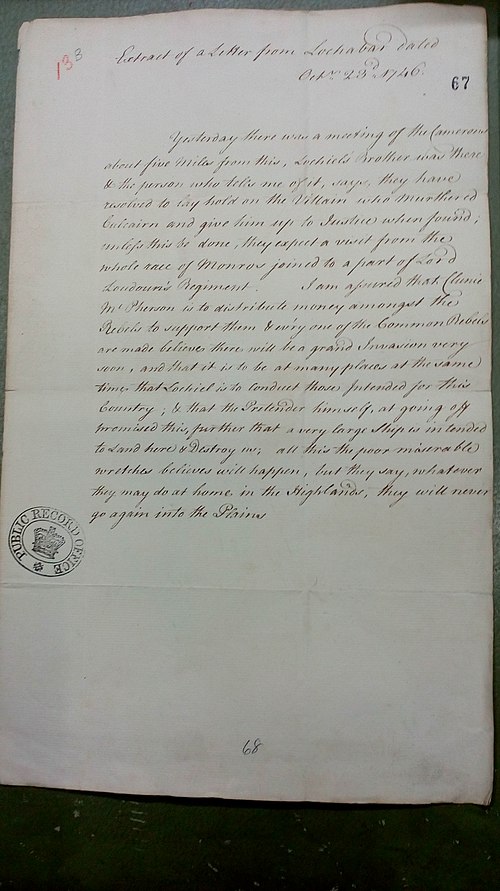 133
Extract of a Letter from Lochabar dated
Octr. 23d. 1746.
67
Yesterday there was a meeting of the Camerons
about five Miles from this, Lochiels Brother was there
& the person who tells me of it, says, they have
resolved to lay hold on the Villain who Murthered
Culcairn and give him up to Justice when found;
unless this be done, they expect a visit from the
whole race of Monros joined to a part of Lord
Loudoun's Regiment. I am assured that Clunie
Mc Pherson is to distribute money amongst the
Rebels to support them & evry one of the Common Rebels
are made believe there will be a grand Invasion very
soon, and that it is to be at many places at the same
time, that Lochiel is to conduct those Intended for this
Country; & that the Pretender himself, at going off
promised this, further that a very large Ship is intended
to Land here & Destroy us; all this the poor miserable
wretches believes will happen, but they say, whatever
they may do at home in the Highlands, they will never
go again into the Plains
PUBLIC RECORD OFFICE
68